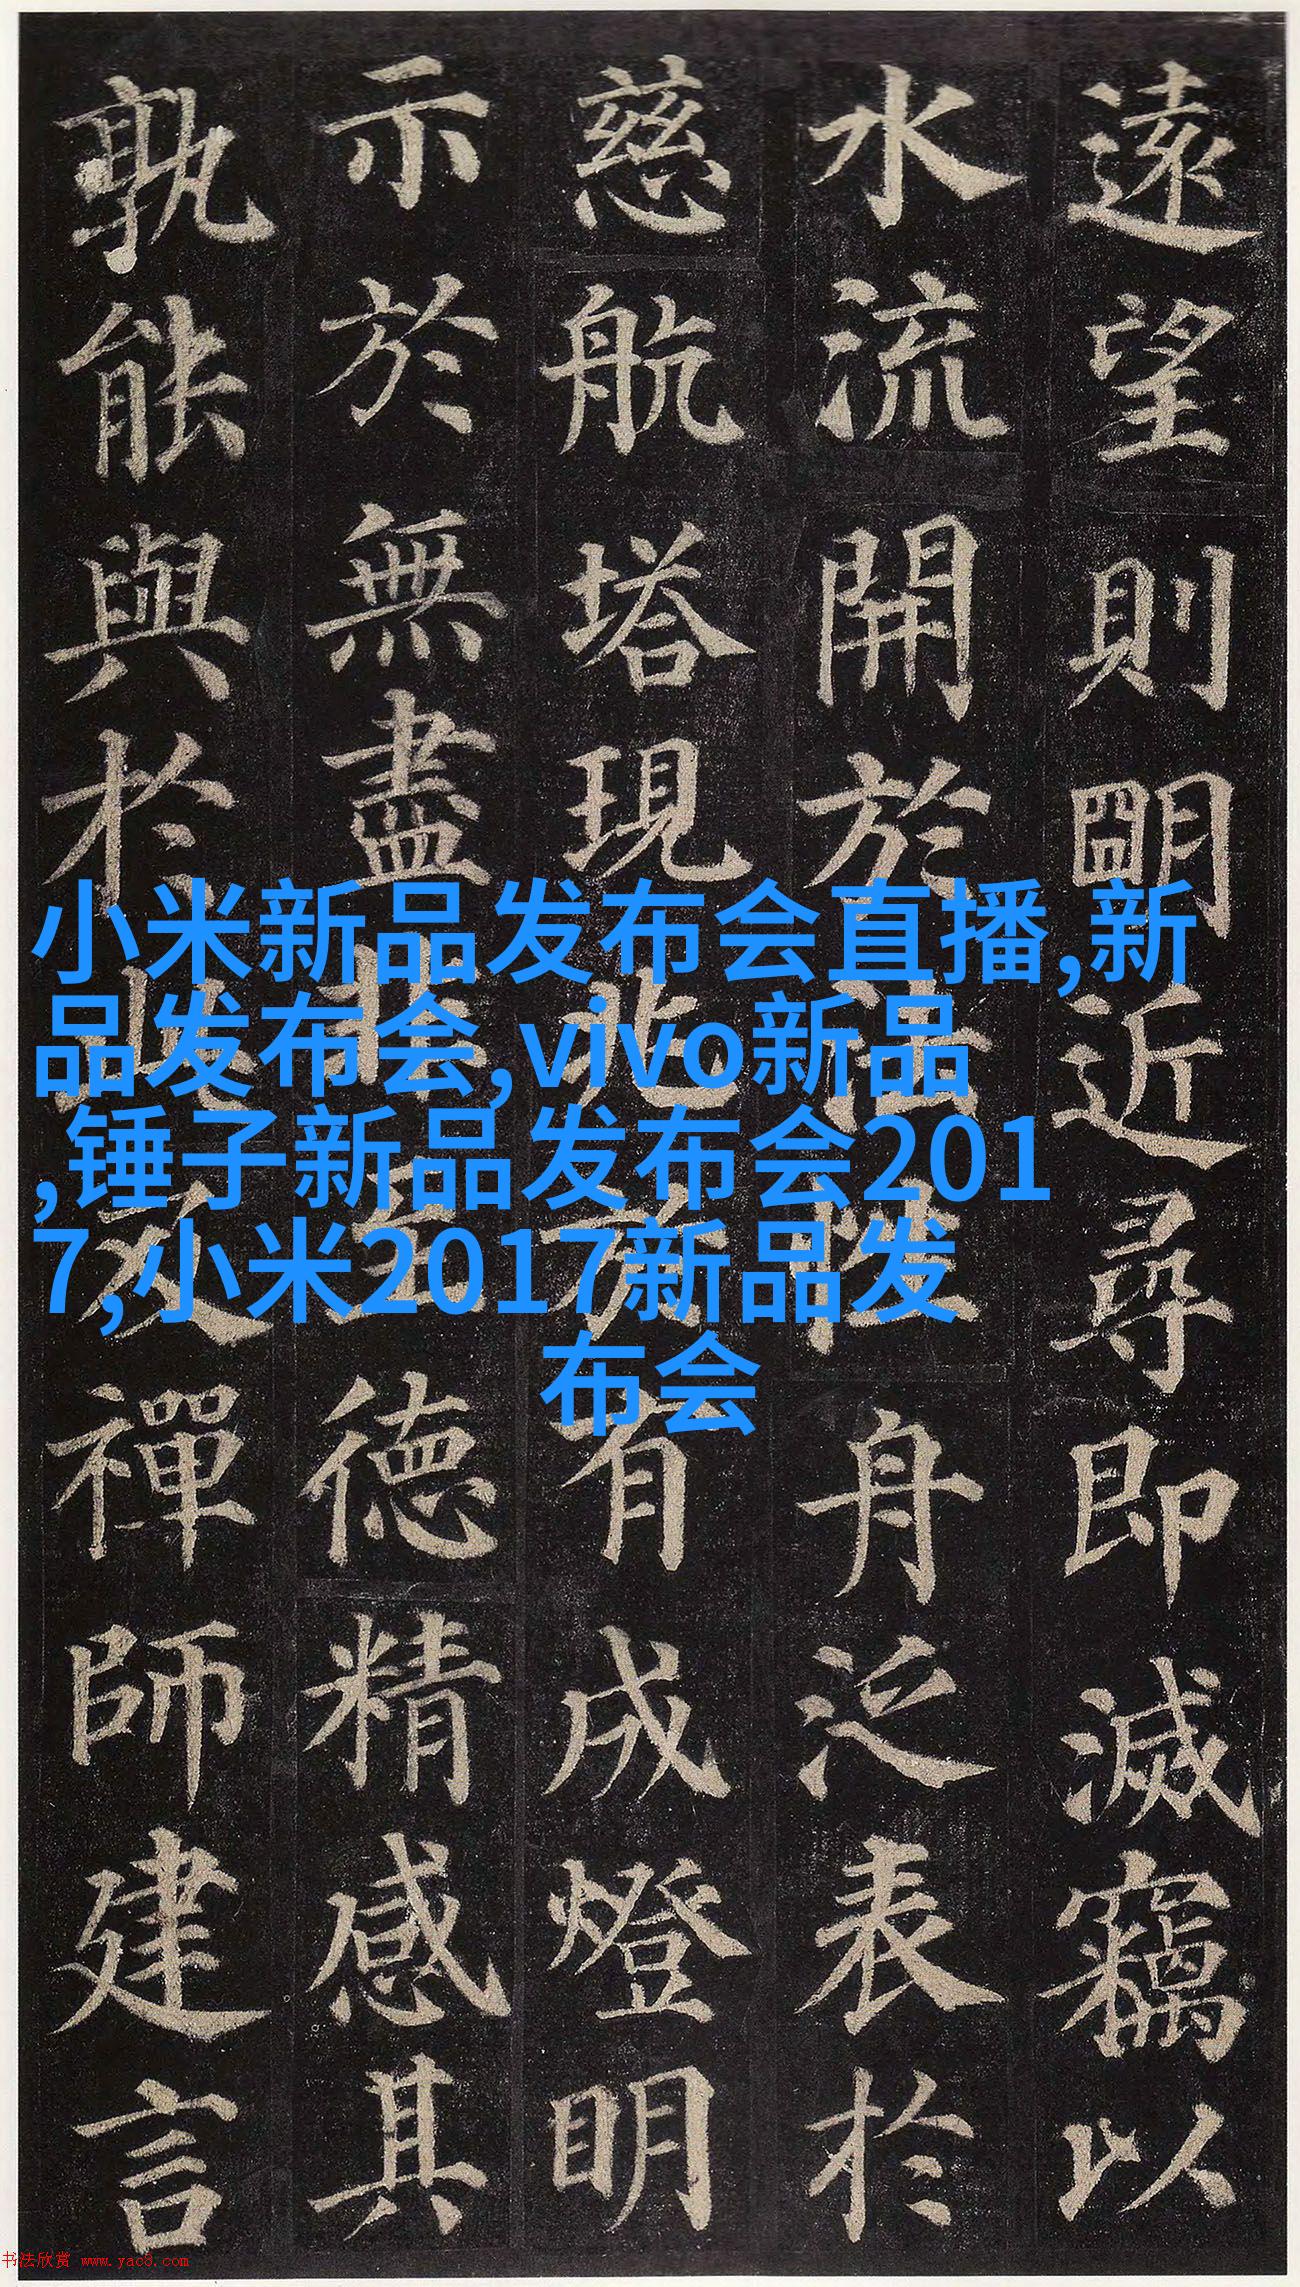 遠望則朙近尋即滅竊以
水流開於法性舟泛表於
慈航塔現兆於有成燈明
示於無盡非至德精感其
孰能與於此及禪師建言
小米新品发布会直播,新
品发布会,vivo新品
,锤子新品发布会201
7,小米2017新品发
布会
书法欣赏 www.yac8.com